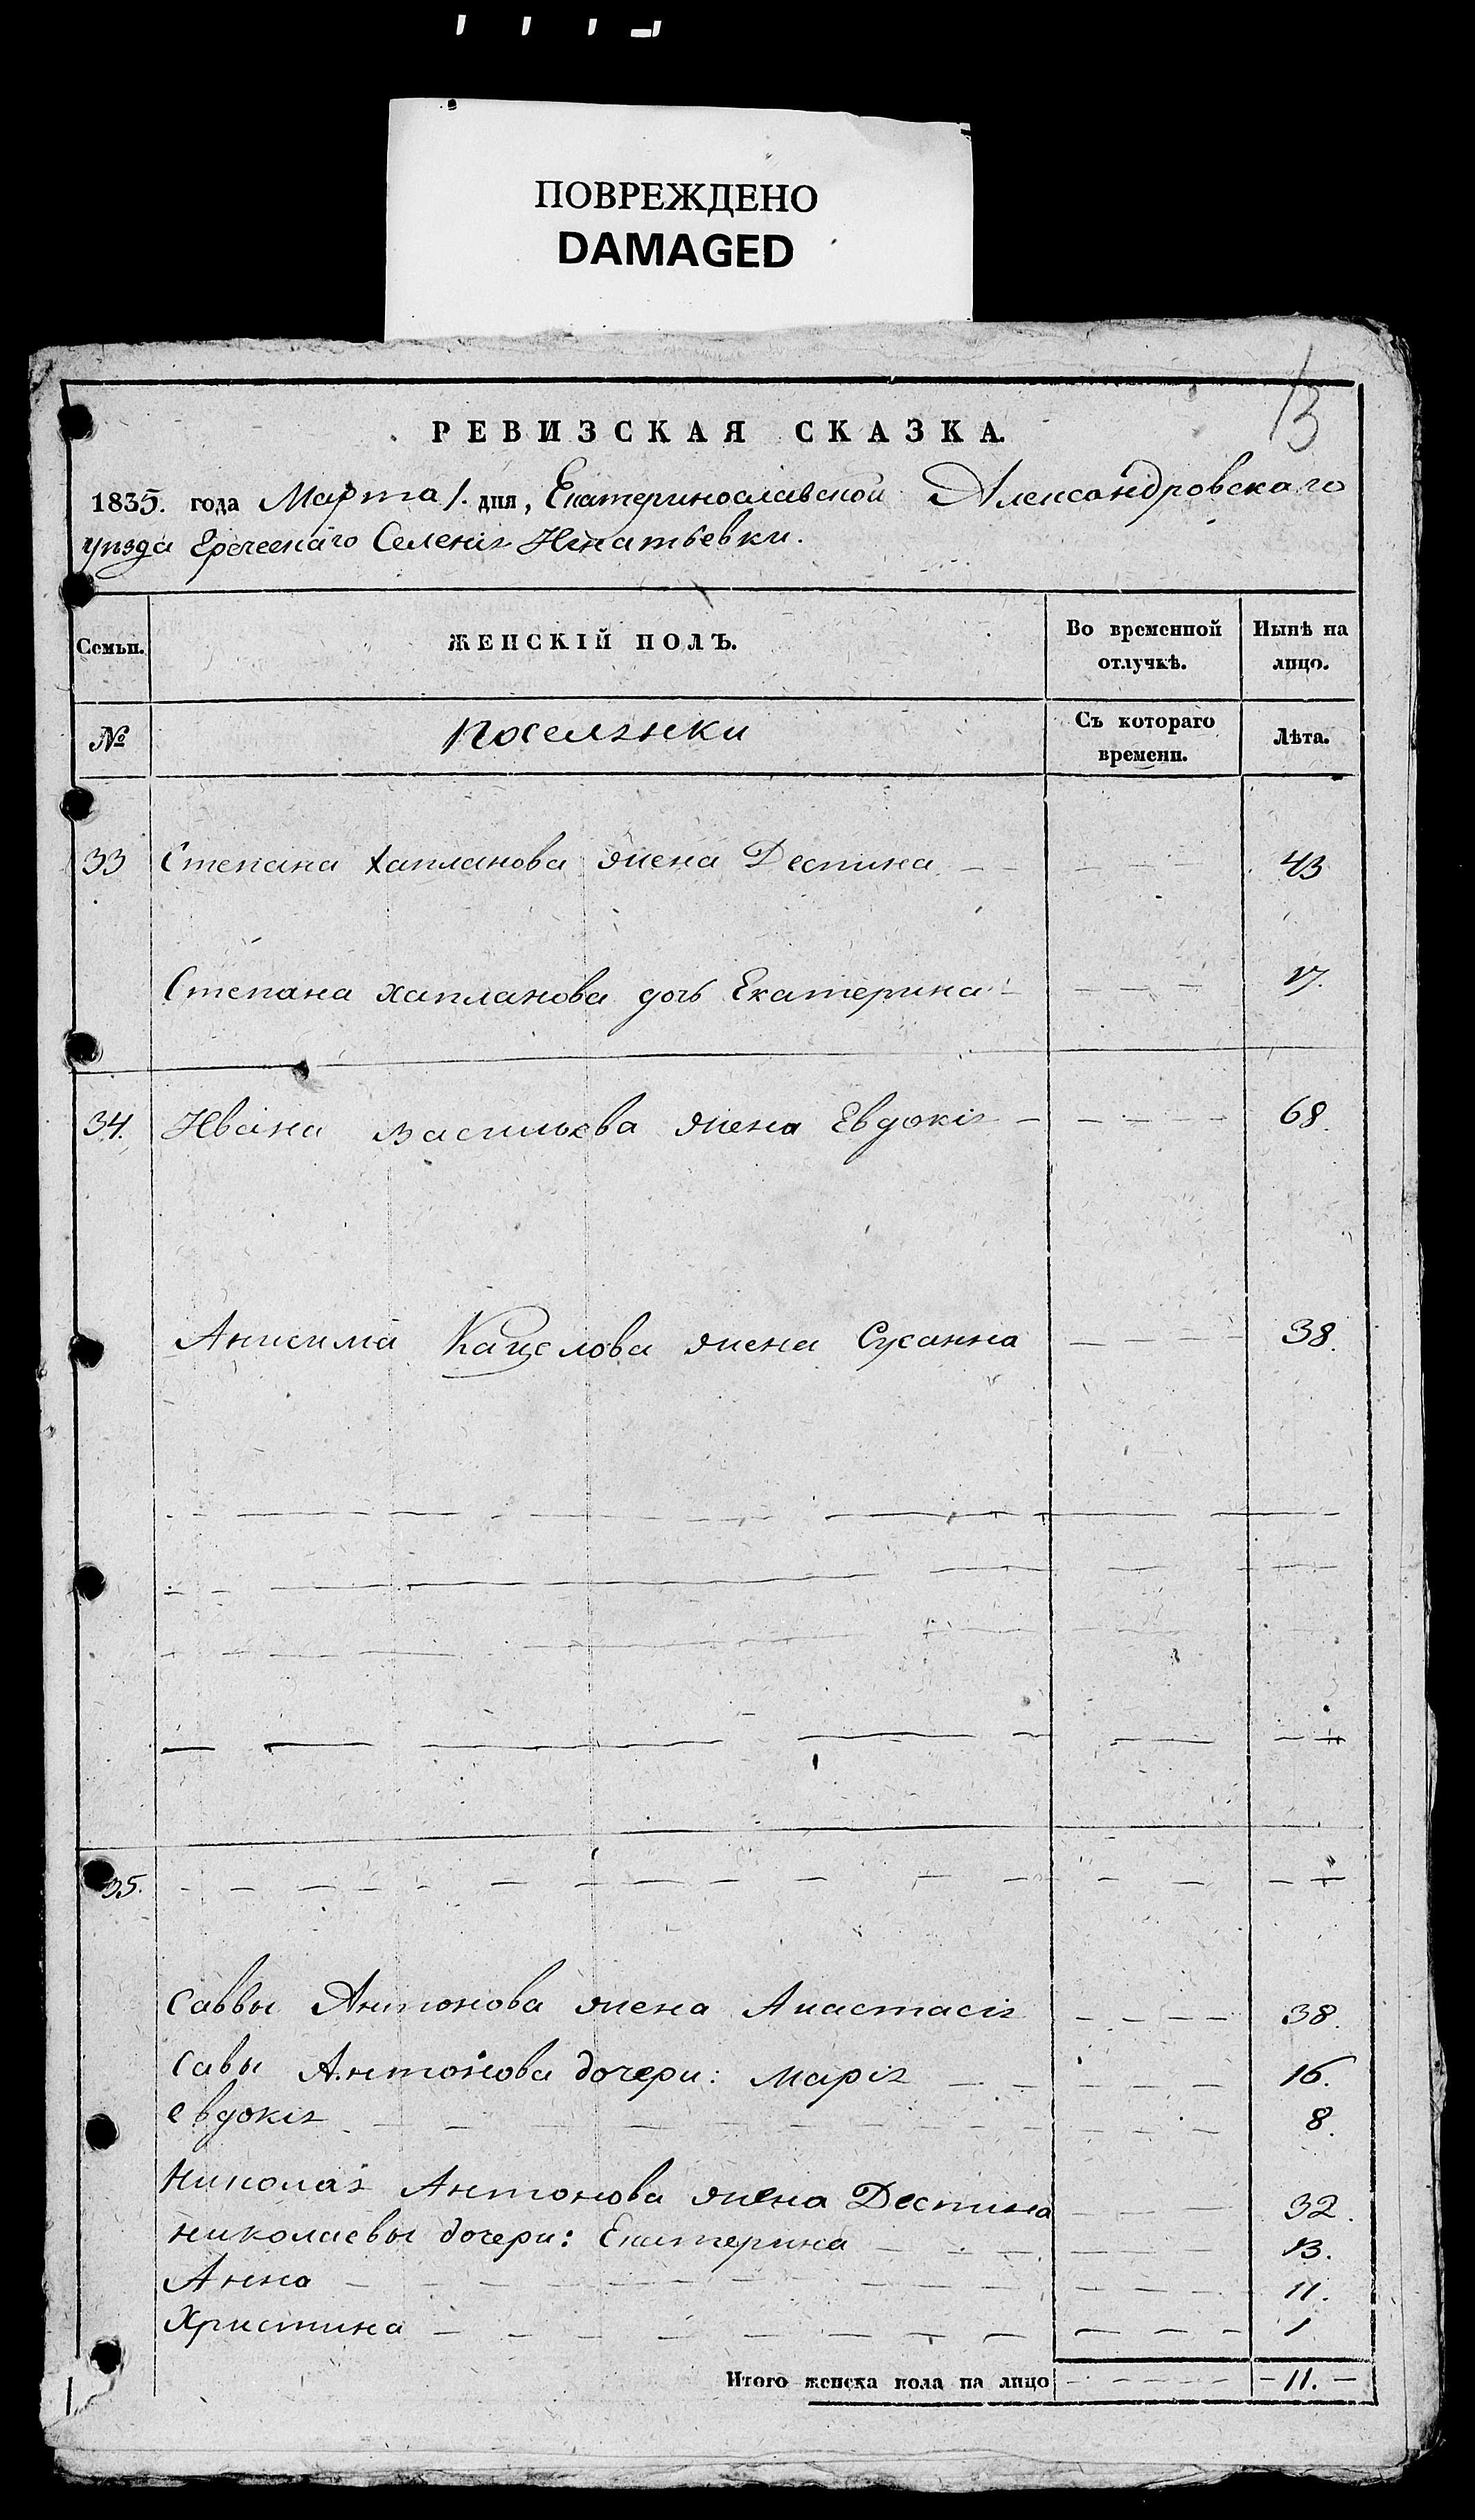 ПОВРЕЖДЕНО
DAMAGED
13
РЕВИЗСКАЯ СКАЗКА.
1835. года Марта 1. дня, Екатеринославской Александровскаго
уезда Греческаго Селенія Игнатьевки.
Семьи. ЖЕНСКІЙ ПОЛЪ. Во временной отлучкѣ. Нынѣ на лицо.
№ поселянки Съ котораго времени. Лѣта.
33 Степана Хапланова жена Деспина — — — — — 43
Степана хапланова дочь Екатерина — — — — 17.
34. Ивана Васильева жена Евдокія — — — — — 68.
Анисима Кацелова жена Сусанна — — — — 38.
35. — — — — — — — — — — — — — — —
Саввы Антонова жена Анастасія — — — — 38.
Савы Антонова дочери: Марія — — — — — 16.
евдокія — — — — — — — — — — 8.
Николая Антонова жена Деспина — — 32.
николаевы дочери: Екатерина — — — — — — 13.
Анна — — — — — — — — — — — — 11.
Христина — — — — — — — — — — — 1
Итого женска пола на лицо — — — — — — 11. —